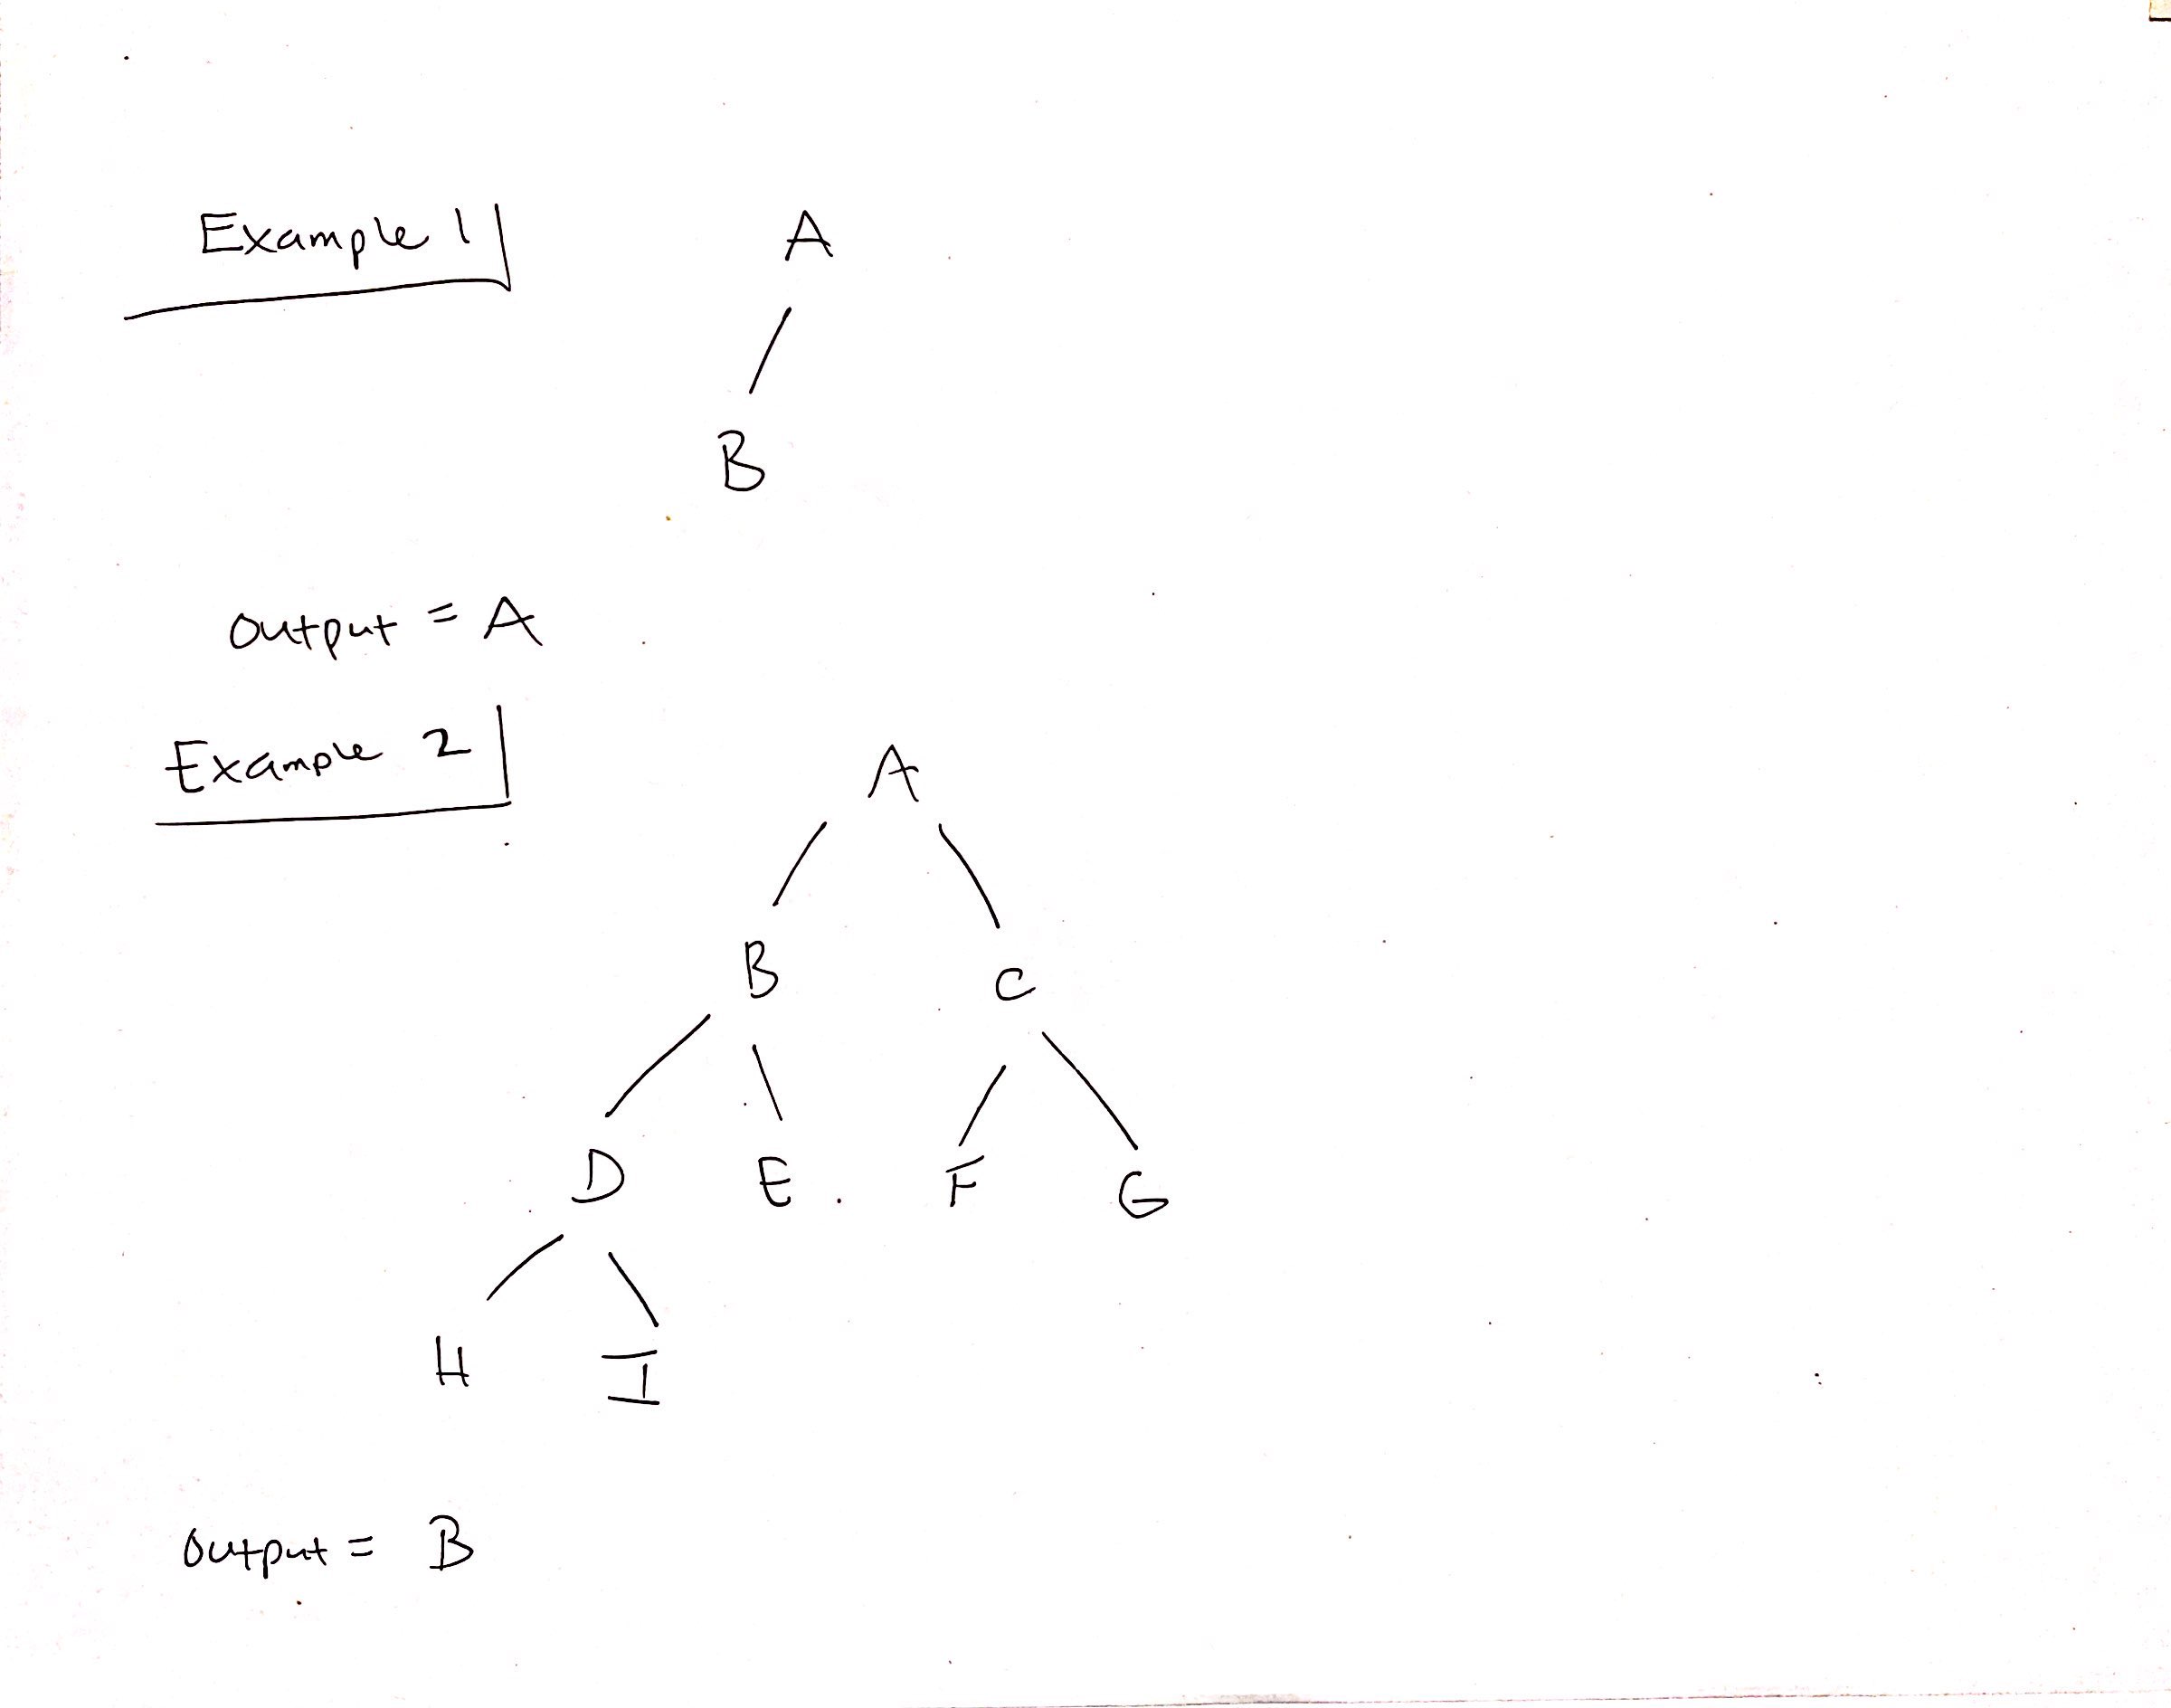 Example 1
A
B
output = A
Example 2
A
B C
D E F G
H I
output = B